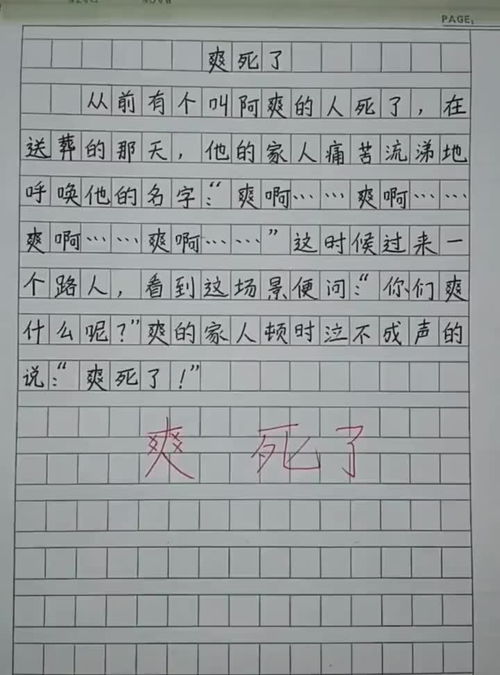 PAGE:
爽死了
从前有个叫阿爽的人死了，在
送葬的那天，他的家人痛苦流涕地
呼唤他的名字：“爽啊……爽啊……
爽啊……爽啊……”这时候过来一
个路人，看到这场景便问：“你们爽
什么呢？”爽的家人顿时泣不成声的
说：“爽死了！”
爽 死了